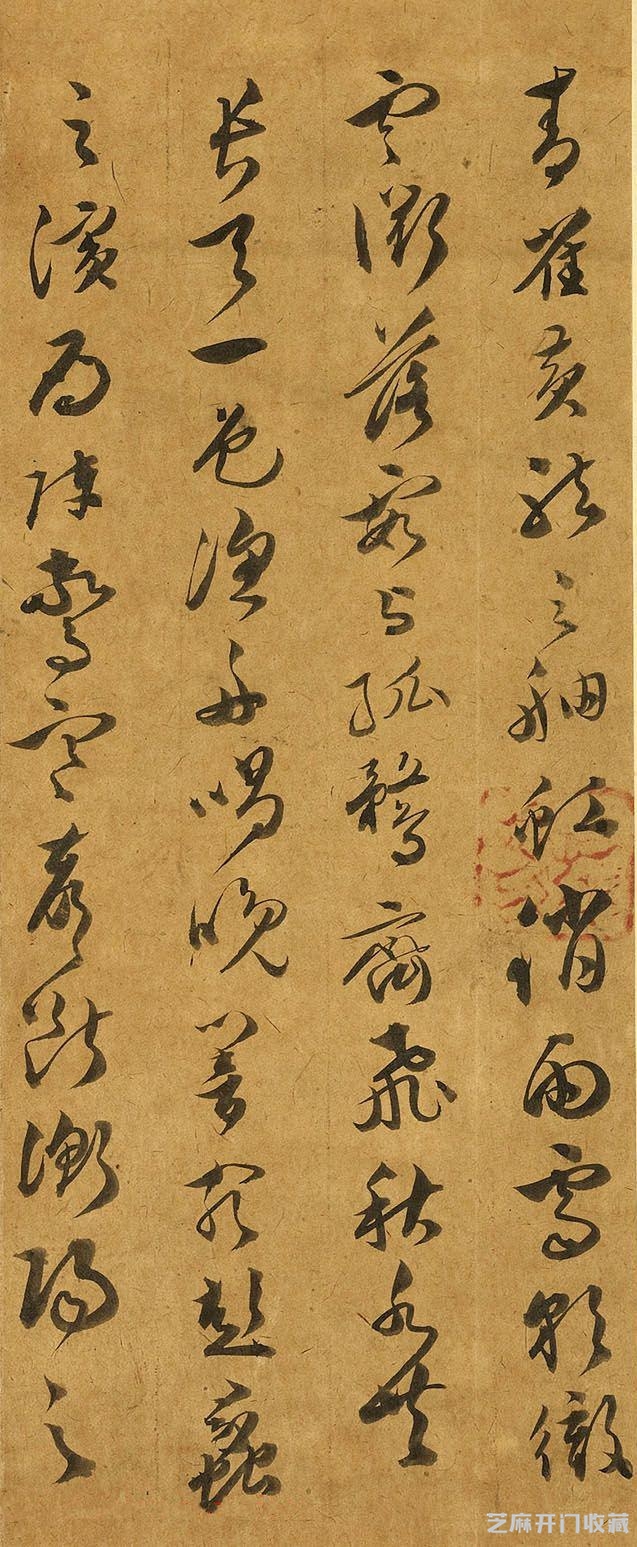 青雀黃龍之舳虹銷雨霽彩徹
雲衢落霞与孤鶩齊飛秋水共
長天一色漁舟唱晚響窮彭蠡
之濱雁陣驚寒聲斷衡陽之
芝麻开门收藏